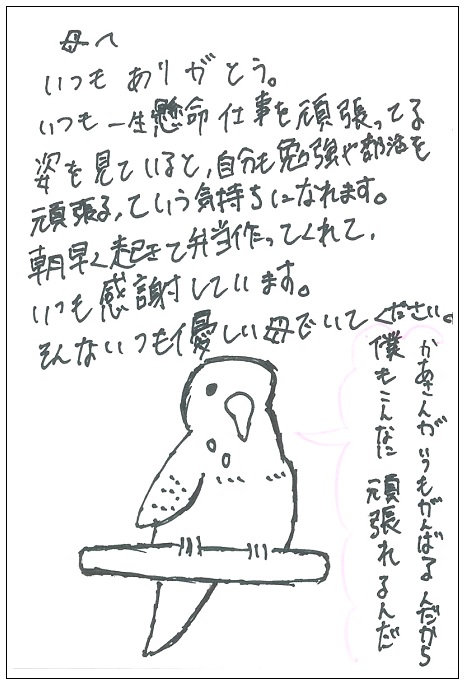 母へ
いつも ありがとう。
いつも 一生懸命 仕事を 頑張ってる
姿を見ていると、自分も勉強や部活を
頑張る、ていう気持ちになれます。
朝早く起きて弁当作ってくれて、
いつも感謝しています。
そんないつも優しい母でいてください。
かあさんがいつもがんばるんだから
僕もこんなに頑張れるんだ